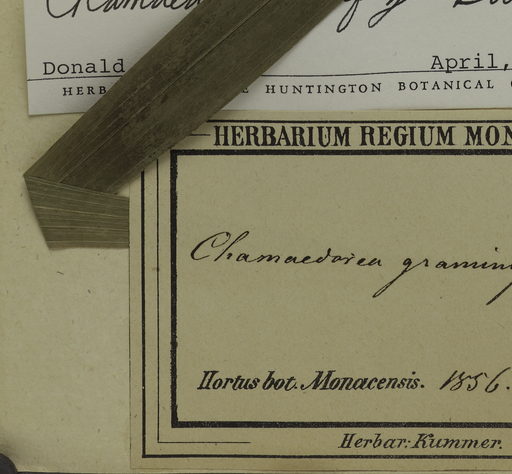 Donald April,
HUNTINGTON BOTANICAL
HERBARIUM REGIUM MON
Chamaedorea gramin
Hortus bot. Monacensis. 1856.
Herbar: Kummer.